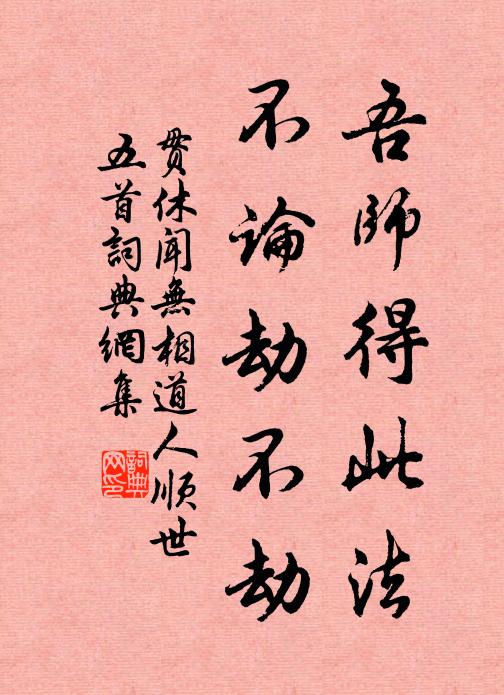 吾師得此法
不論劫不劫
貫休聞無相道人順世
五首詞典網集
詞典
网印